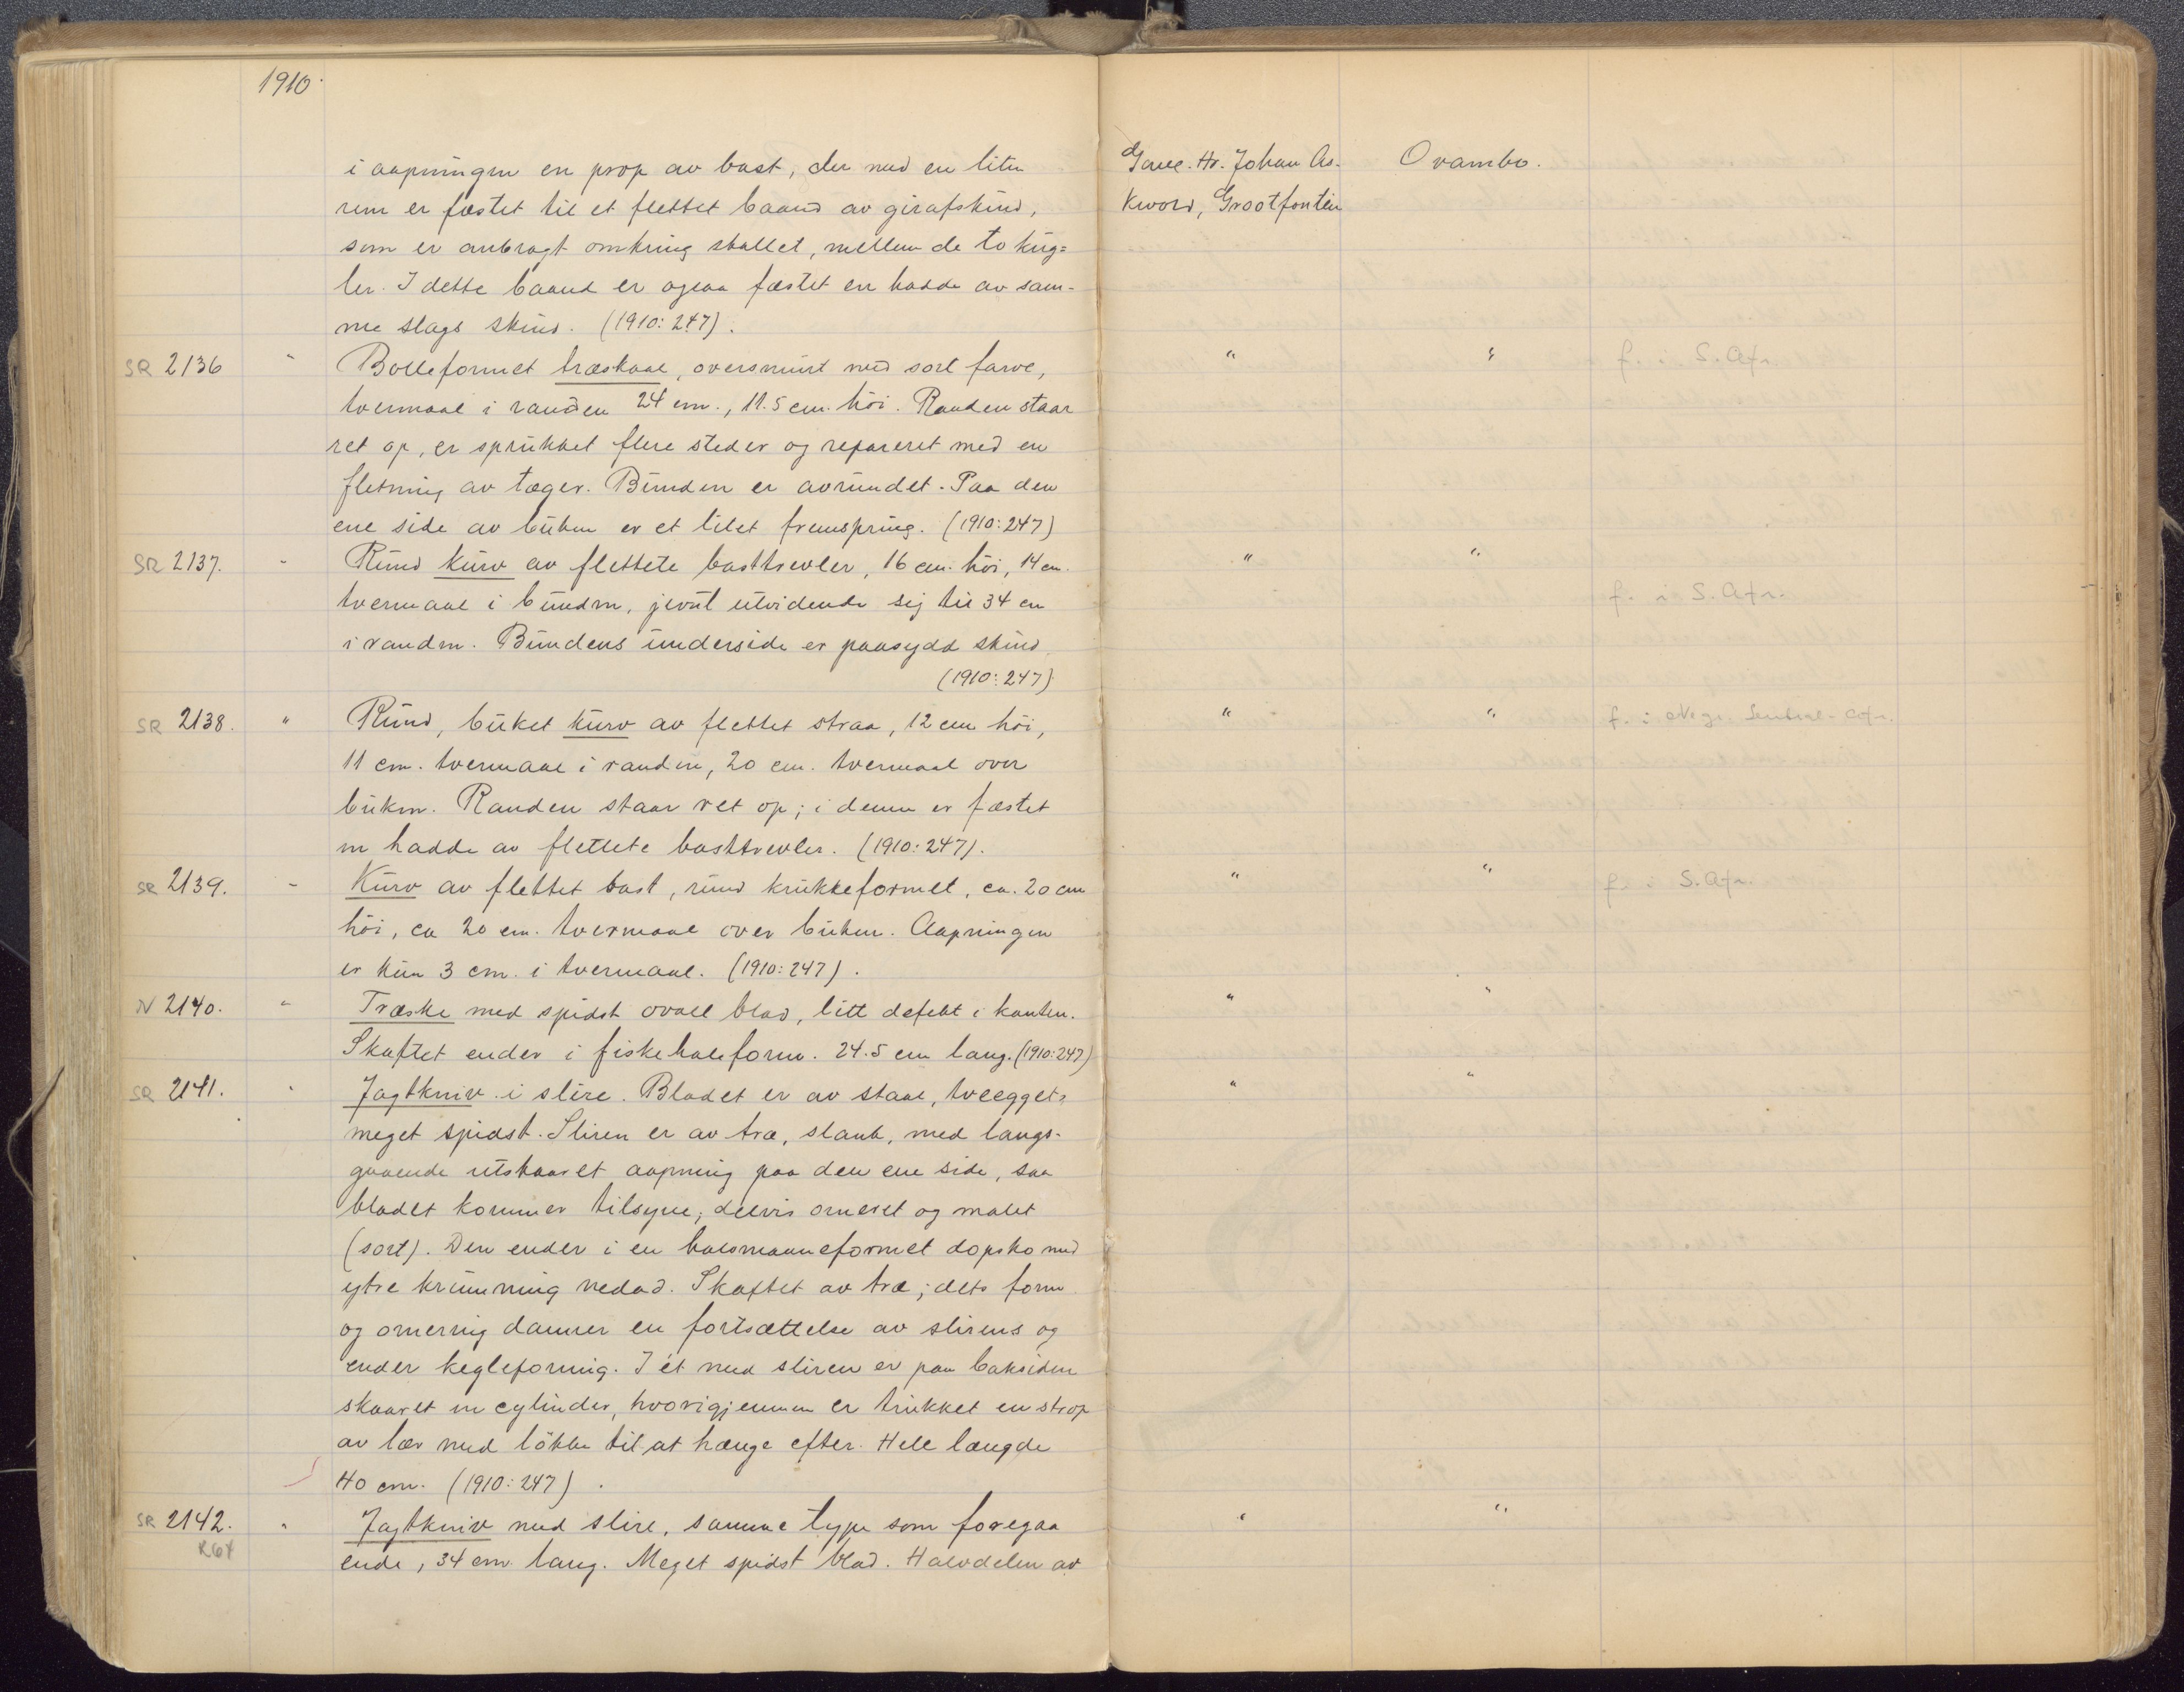 1910.
i aapningen en prop av bast, der med en liten
rem er fæstet til et flettet baand av girafskind,
som er anbragt omkring skallet, mellem de to kug=
ler. I dette baand er ogsaa fæstet en hadde av sam-
me slags skind. (1910: 247).
Gave. Hr. Johan As-
kvord, Grootfontein
Ovambo.
SR 2136 " Bolleformet træskaal, oversmurt med sort farve, " " f. i S. Afr.
tvermaal i randen 24 cm., 11.5 cm. höi. Randen staar
ret op, er sprukket flere steder og repareret med en
fletning av tæger. Bunden er avrundet. Paa den
ene side av buken er et litet fremspring. (1910: 247)
SR 2137. " Rund kurv av flettete basttrevler, 16 cm. höi, 14 cm. " "
tvermaal i bunden, jevnt utvidende sig til 34 cm f. i S. Afr.
i randen. Bundens underside er paasydd skind.
(1910: 247)
SR 2138. " Rund, buket kurv av flettet straa, 12 cm höi, " " f. i Negr. Sentral-Afr.
11 cm. tvermaal i randen, 20 cm. tvermaal over
buken. Randen staar ret op; i denne er fæstet
en hadde av flettete basttrevler. (1910: 247).
SR 2139. " Kurv av flettet bast, rund krukkeformet, ca. 20 cm " " f. i S. Afr.
höi, ca 20 cm. tvermaal over buken. Aapningen
er kun 3 cm. i tvermaal. (1910: 247).
N 2140. " Træske med spidst ovalt blad, litt defekt i kanten. " "
Skaftet ender i fiskehaleform. 24.5 cm lang. (1910: 247)
SR 2141. " Jagtkniv i slire. Bladet er av staal, tveegget, " "
meget spidst. Sliren er av træ, slank, med langs-
gaaende utskaaret aapning paa den ene side, saa
bladet kommer tilsyne; delvis orneret og malet
(sort). Den ender i en halvmaaneformet dopsko med
ytre krumning nedad. Skaftet av træ; dets form
og ornering danner en fortsættelse av slirens og
ender kegleformig. I ét med sliren er paa baksiden
skaaret en cylinder, hvorigjennem er trukket en strop
av lær med lökke til at hænge efter. Hele længde
40 cm. (1910: 247).
SR 2142. " Jagtkniv med slire, samme type som foregaa " "
ende, 34 cm lang. Meget spidst blad. Halvdelen av